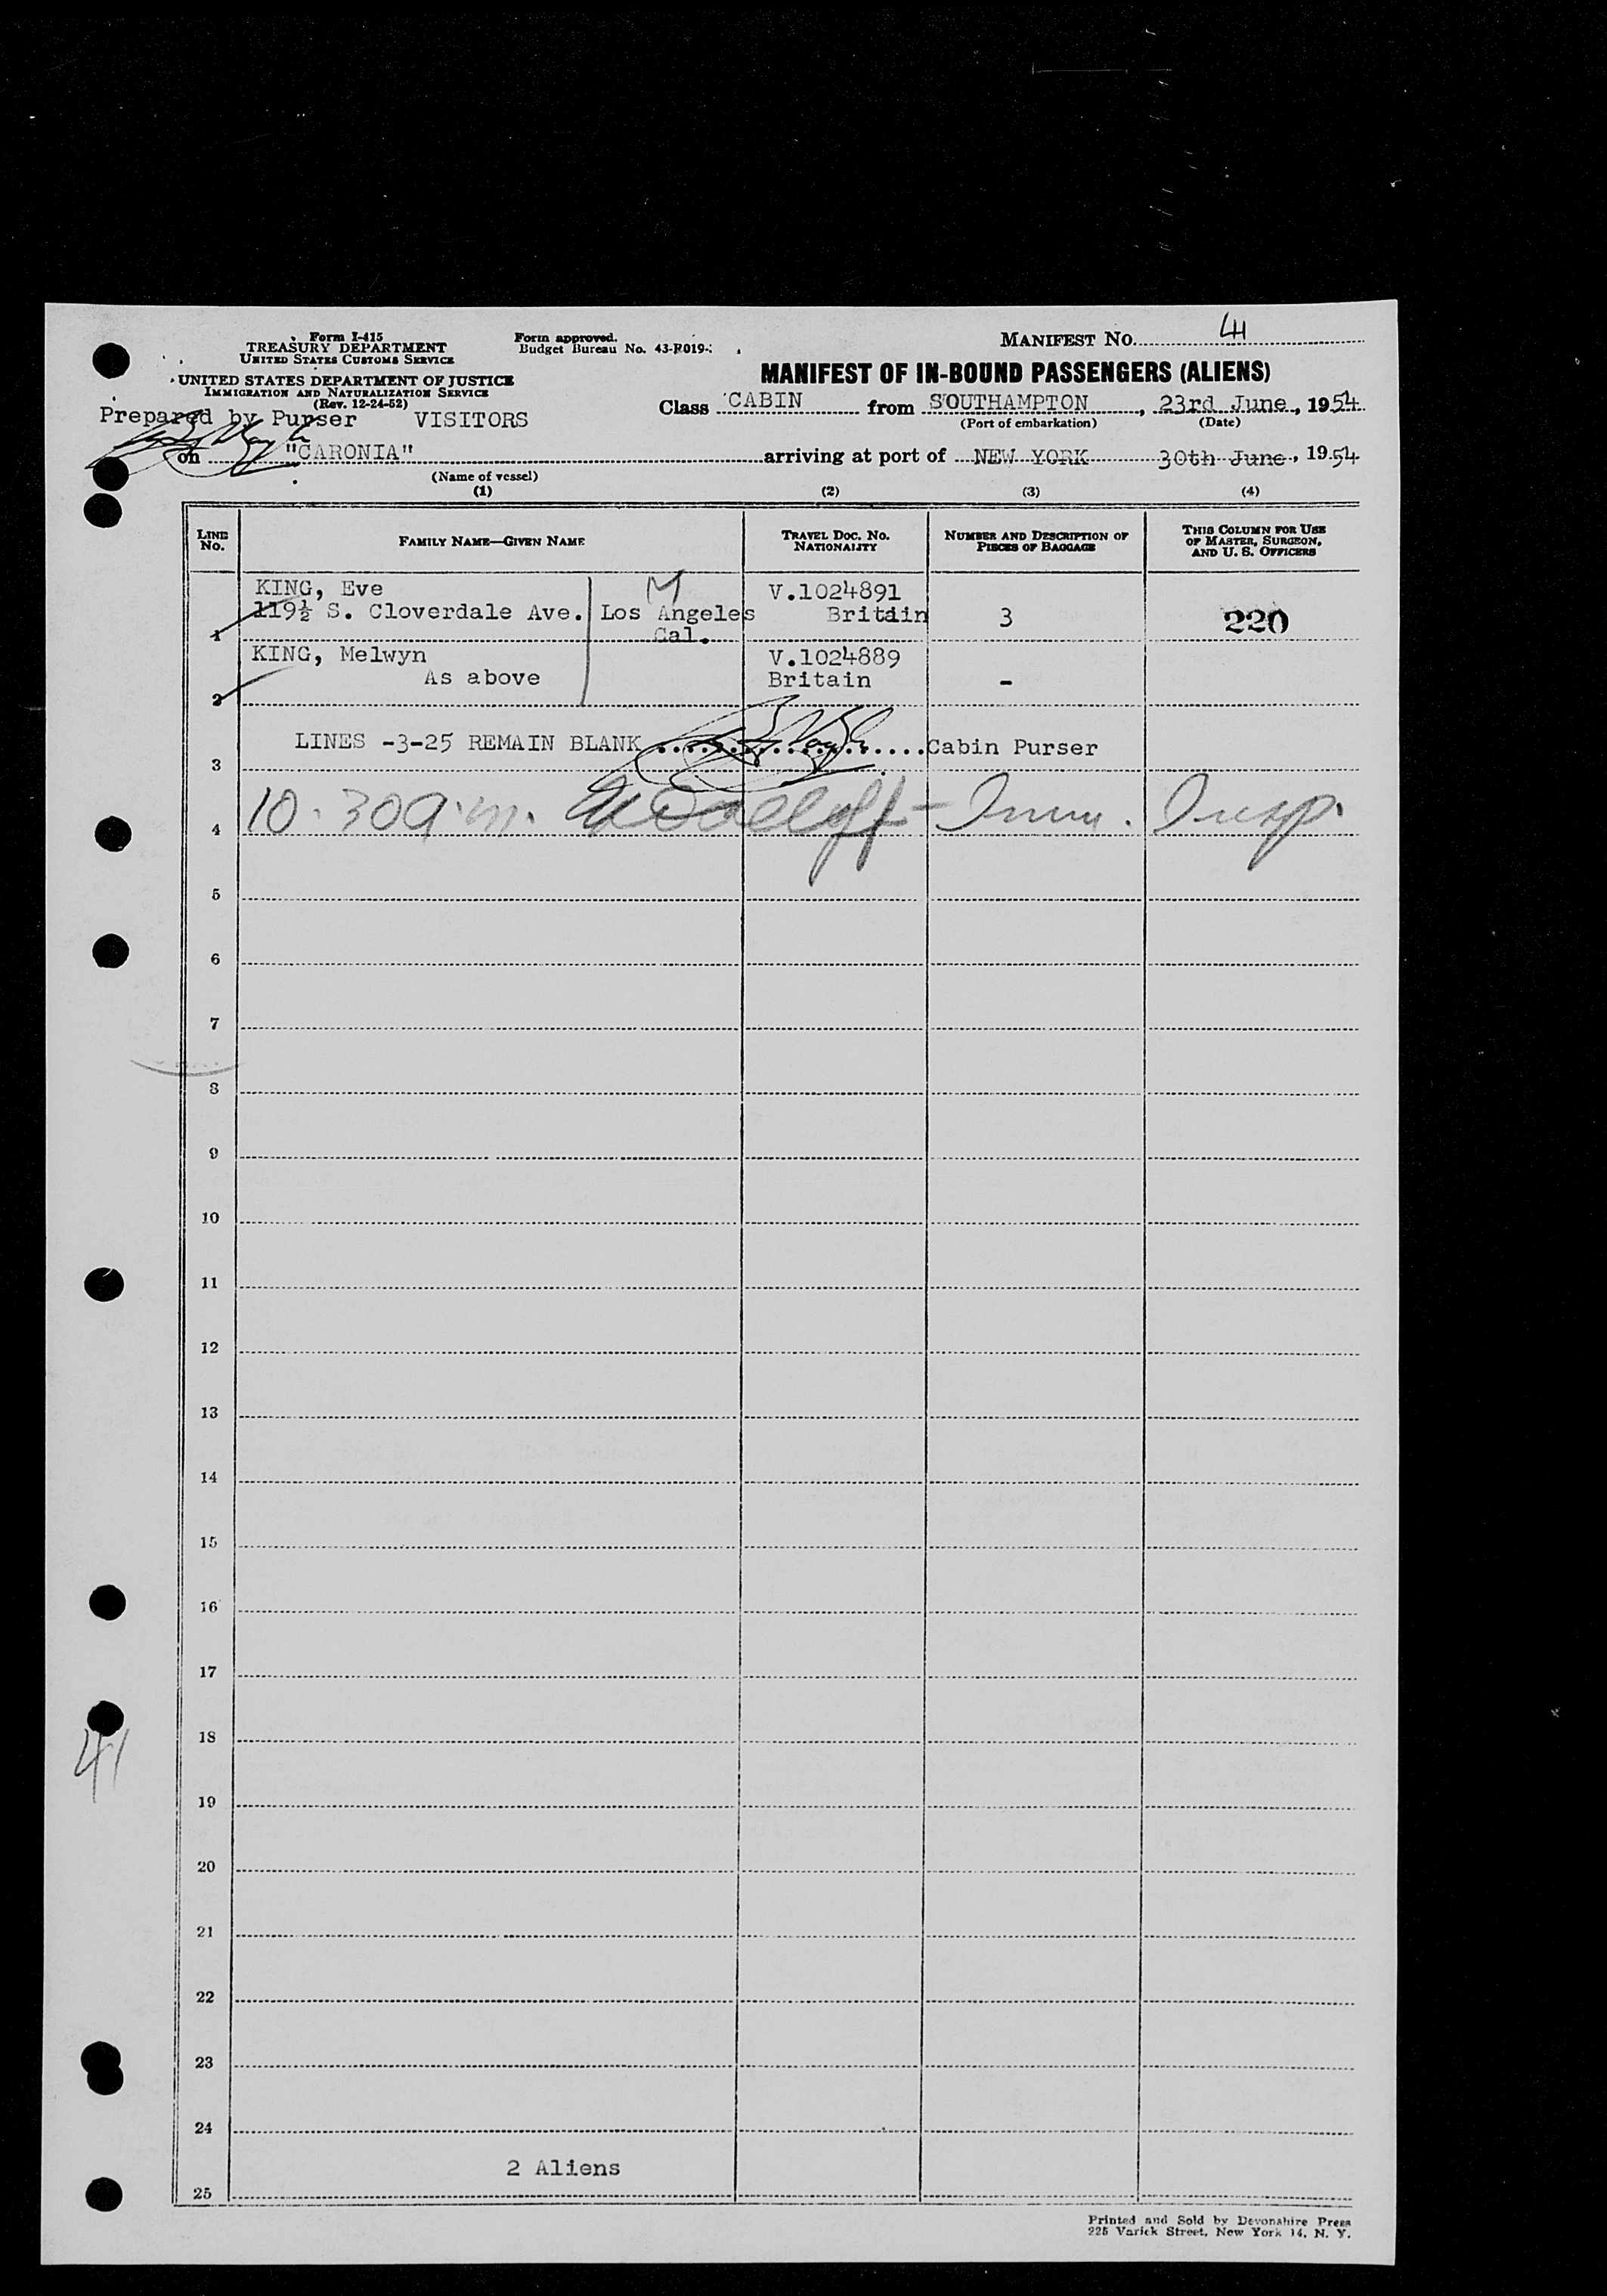 Form I-415
TREASURY DEPARTMENT
UNITED STATES CUSTOMS SERVICE
UNITED STATES DEPARTMENT OF JUSTICE
IMMIGRATION AND NATURALIZATION SERVICE
(Rev. 12-24-52)
Form approved.
Budget Bureau No. 43-R019-
MANIFEST NO. 41
MANIFEST OF IN-BOUND PASSENGERS (ALIENS)
Prepared by Purser VISITORS
Class CABIN from SOUTHAMPTON, 23rd June, 1954
(Port of embarkation) (Date)
on "CARONIA" arriving at port of NEW YORK 30th June, 1954
(Name of vessel)
(1) (2) (3) (4)
LINE NO. FAMILY NAME—GIVEN NAME TRAVEL DOC. NO. NATIONALITY NUMBER AND DESCRIPTION OF PIECES OF BAGGAGE THIS COLUMN FOR USE OF MASTER, SURGEON, AND U. S. OFFICERS
KING, Eve M V.1024891
119½ S. Cloverdale Ave. Los Angeles Britain 3 220
1 Cal.
KING, Melwyn V.1024889
As above Britain -
2
LINES -3-25 REMAIN BLANK Cabin Purser
3
4 10.30 a.m. Imm. Insp.
5
6
7
8
9
10
11
12
13
14
15
16
17
41
18
19
20
21
22
23
24
2 Aliens
25
Printed and Sold by Devonshire Press
225 Varick Street, New York 14, N. Y.